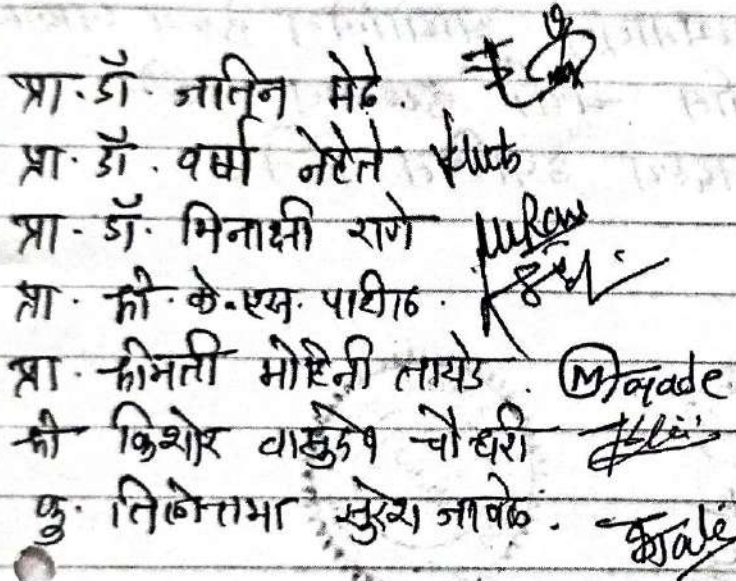 प्रा. डॉ. जतिन मेढे.
प्रा. डॉ. वर्षा नेहेते
प्रा. डॉ. मिनाक्षी राणे
प्रा. श्री. के. एस. पाटील.
प्रा. श्रीमती मोहिनी तायडे. MTayade
श्री किशोर वासुदेव चौधरी
कु. तिलोत्तमा सुरेश जावळे.